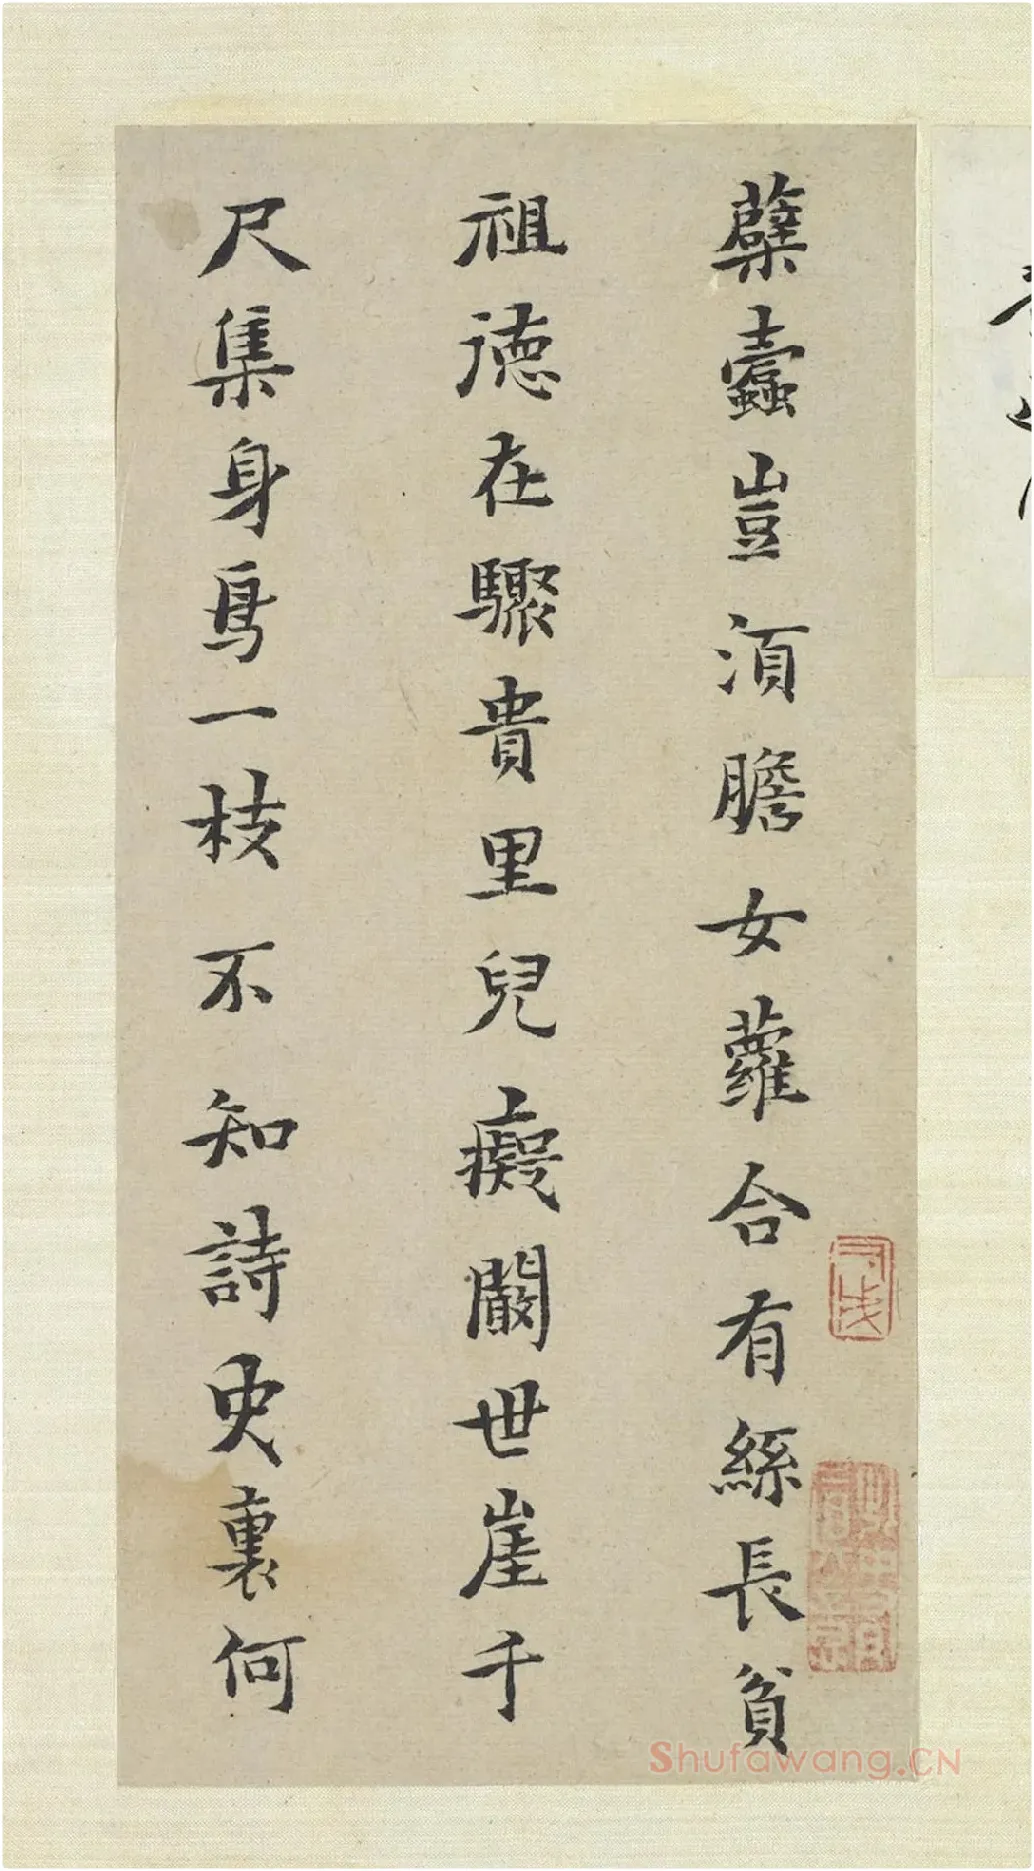 蘖蠹豈須膽女蘿合有絲長貧
祖德在驟貴里兒癡闞世崖千
尺集身鳥一枝不知詩史裏何
Shufawang.CN